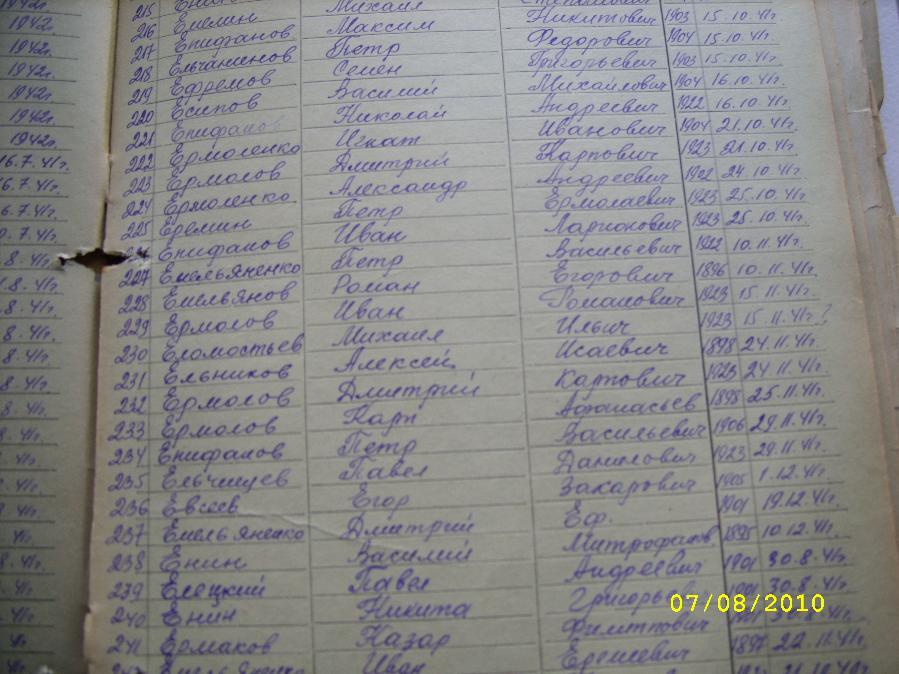 1942г.
1942г.
1942г.
1942г.
1942г.
1942г.
16.7.41г.
6.7.41г.
6.7.41г.
9.7.41г.
8.41г.
1.8.41г.
8.41г.
8.41г.
8.41г.
8.41г.
8.41г.
215 Степанович
216 Емелин Михаил Никитович 1903 15.10.41г.
217 Епифанов Максим Федорович 1904 15.10.41г.
218 Ельчанинов Петр Григорьевич 1903 15.10.41г.
219 Ефремов Семен Михайлович 1904 16.10.41г.
220 Есипов Василий Андреевич 1922 16.10.41г.
221 Епифанов Николай Иванович 1904 21.10.41г.
222 Ермоленко Игнат Карпович 1923 21.10.41г.
223 Ермолов Дмитрий Андреевич 1902 24.10.41г.
224 Ермоленко Александр Ермолаевич 1923 25.10.41г.
225 Еремин Петр Ларионович 1923 25.10.41г.
Епифанов Иван Васильевич 1922 10.11.41г.
227 Емельяненко Петр Егорович 1896 10.11.41г.
228 Емельянов Роман Романович 1923 15.11.41г.
229 Ермолов Иван Ильич 1923 15.11.41г.?
230 Еломостьев Михаил Исаевич 1898 24.11.41г.
231 Ельников Алексей Карпович 1923 24.11.41г.
232 Ермолов Дмитрий Афанасьев 1898 25.11.41г.
233 Ермолов Карп Васильевич 1906 29.11.41г.
234 Епифанов Петр Данилович 1923 29.11.41г.
235 Ельчищев Павел Захарович 1905 1.12.41г.
236 Евсеев Егор Еф. 1901 19.12.41г.
237 Емельяненко Дмитрий Митрофанов 1895 10.12.41г.
238 Енин Василий Андреевич 1901 30.8.41г.
239 Елецкий Павел Григорьев 1901 30.8.41г.
240 Енин Никита Филиппович 30.8.41г.
241 Ермаков Назар Еремеевич 1897 22.11.41г.
Емельяненко Иван
07/08/2010